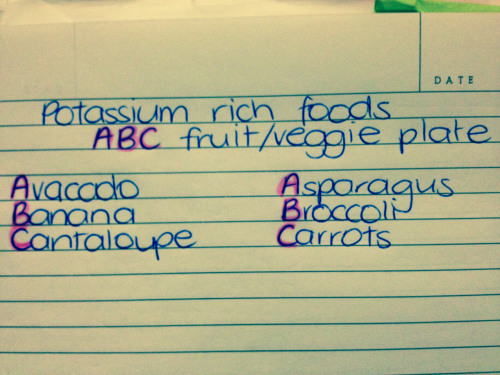 DATE
Potassium rich foods
ABC fruit/veggie plate
Avacado Asparagus
Banana Broccoli
Cantaloupe Carrots